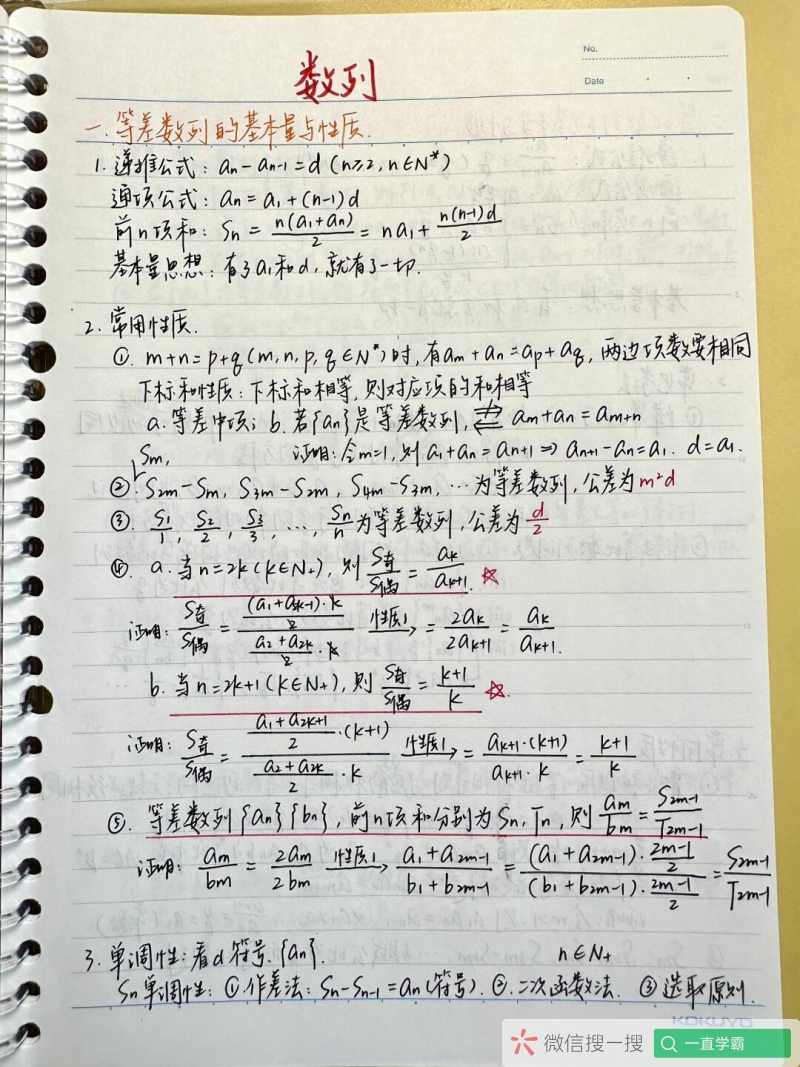 No.
数列
Date
一.等差数列的基本量与性质.
1.递推公式: an-an-1=d (n≥2, n∈N*)
通项公式: an=a1+(n-1)d
前n项和: Sn = n(a1+an)/2 = na1+ n(n-1)d/2
基本量思想: 有了a1和d, 就有了一切.
2.常用性质.
①. m+n=p+q (m, n, p, q∈N*)时, 有am+an=ap+aq, 两边项数要相同
下标和性质: 下标和相等, 则对应项的和相等
a.等差中项; b.若{an}是等差数列, ⇄ am+an=am+n
证明: 令m=1, 则a1+an=an+1 ⇒ an+1-an=a1. d=a1.
Sm,
②. S2m-Sm, S3m-S2m, S4m-S3m, …为等差数列, 公差为m²d
③. S1/1, S2/2, S3/3, …, Sn/n为等差数列, 公差为d/2
④. a.当n=2k(k∈N+), 则 S奇/S偶 = ak/ak+1. ☆
证明: S奇/S偶 = ((a1+a2k-1)·k/2)/((a2+a2k)/2·k) 性质1→ = 2ak/2ak+1 = ak/ak+1.
b.当n=2k+1(k∈N+), 则 S奇/S偶 = k+1/k ☆.
证明: S奇/S偶 = ((a1+a2k+1)/2·(k+1))/((a2+a2k)/2·k) 性质1→ = ak+1·(k+1)/ak+1·k = k+1/k
⑤. 等差数列{an}{bn}, 前n项和分别为Sn, Tn, 则 am/bm = S2m-1/T2m-1
证明: am/bm = 2am/2bm 性质1→ a1+a2m-1/b1+b2m-1 = (a1+a2m-1)·2m-1/2/(b1+b2m-1)·2m-1/2 = S2m-1/T2m-1
3.单调性: 看d符号. {an}. n∈N+
Sn单调性: ①.作差法: Sn-Sn-1=an(符号). ②.二次函数法. ③选取原则.
KOKUYO
微信搜一搜
一直学霸